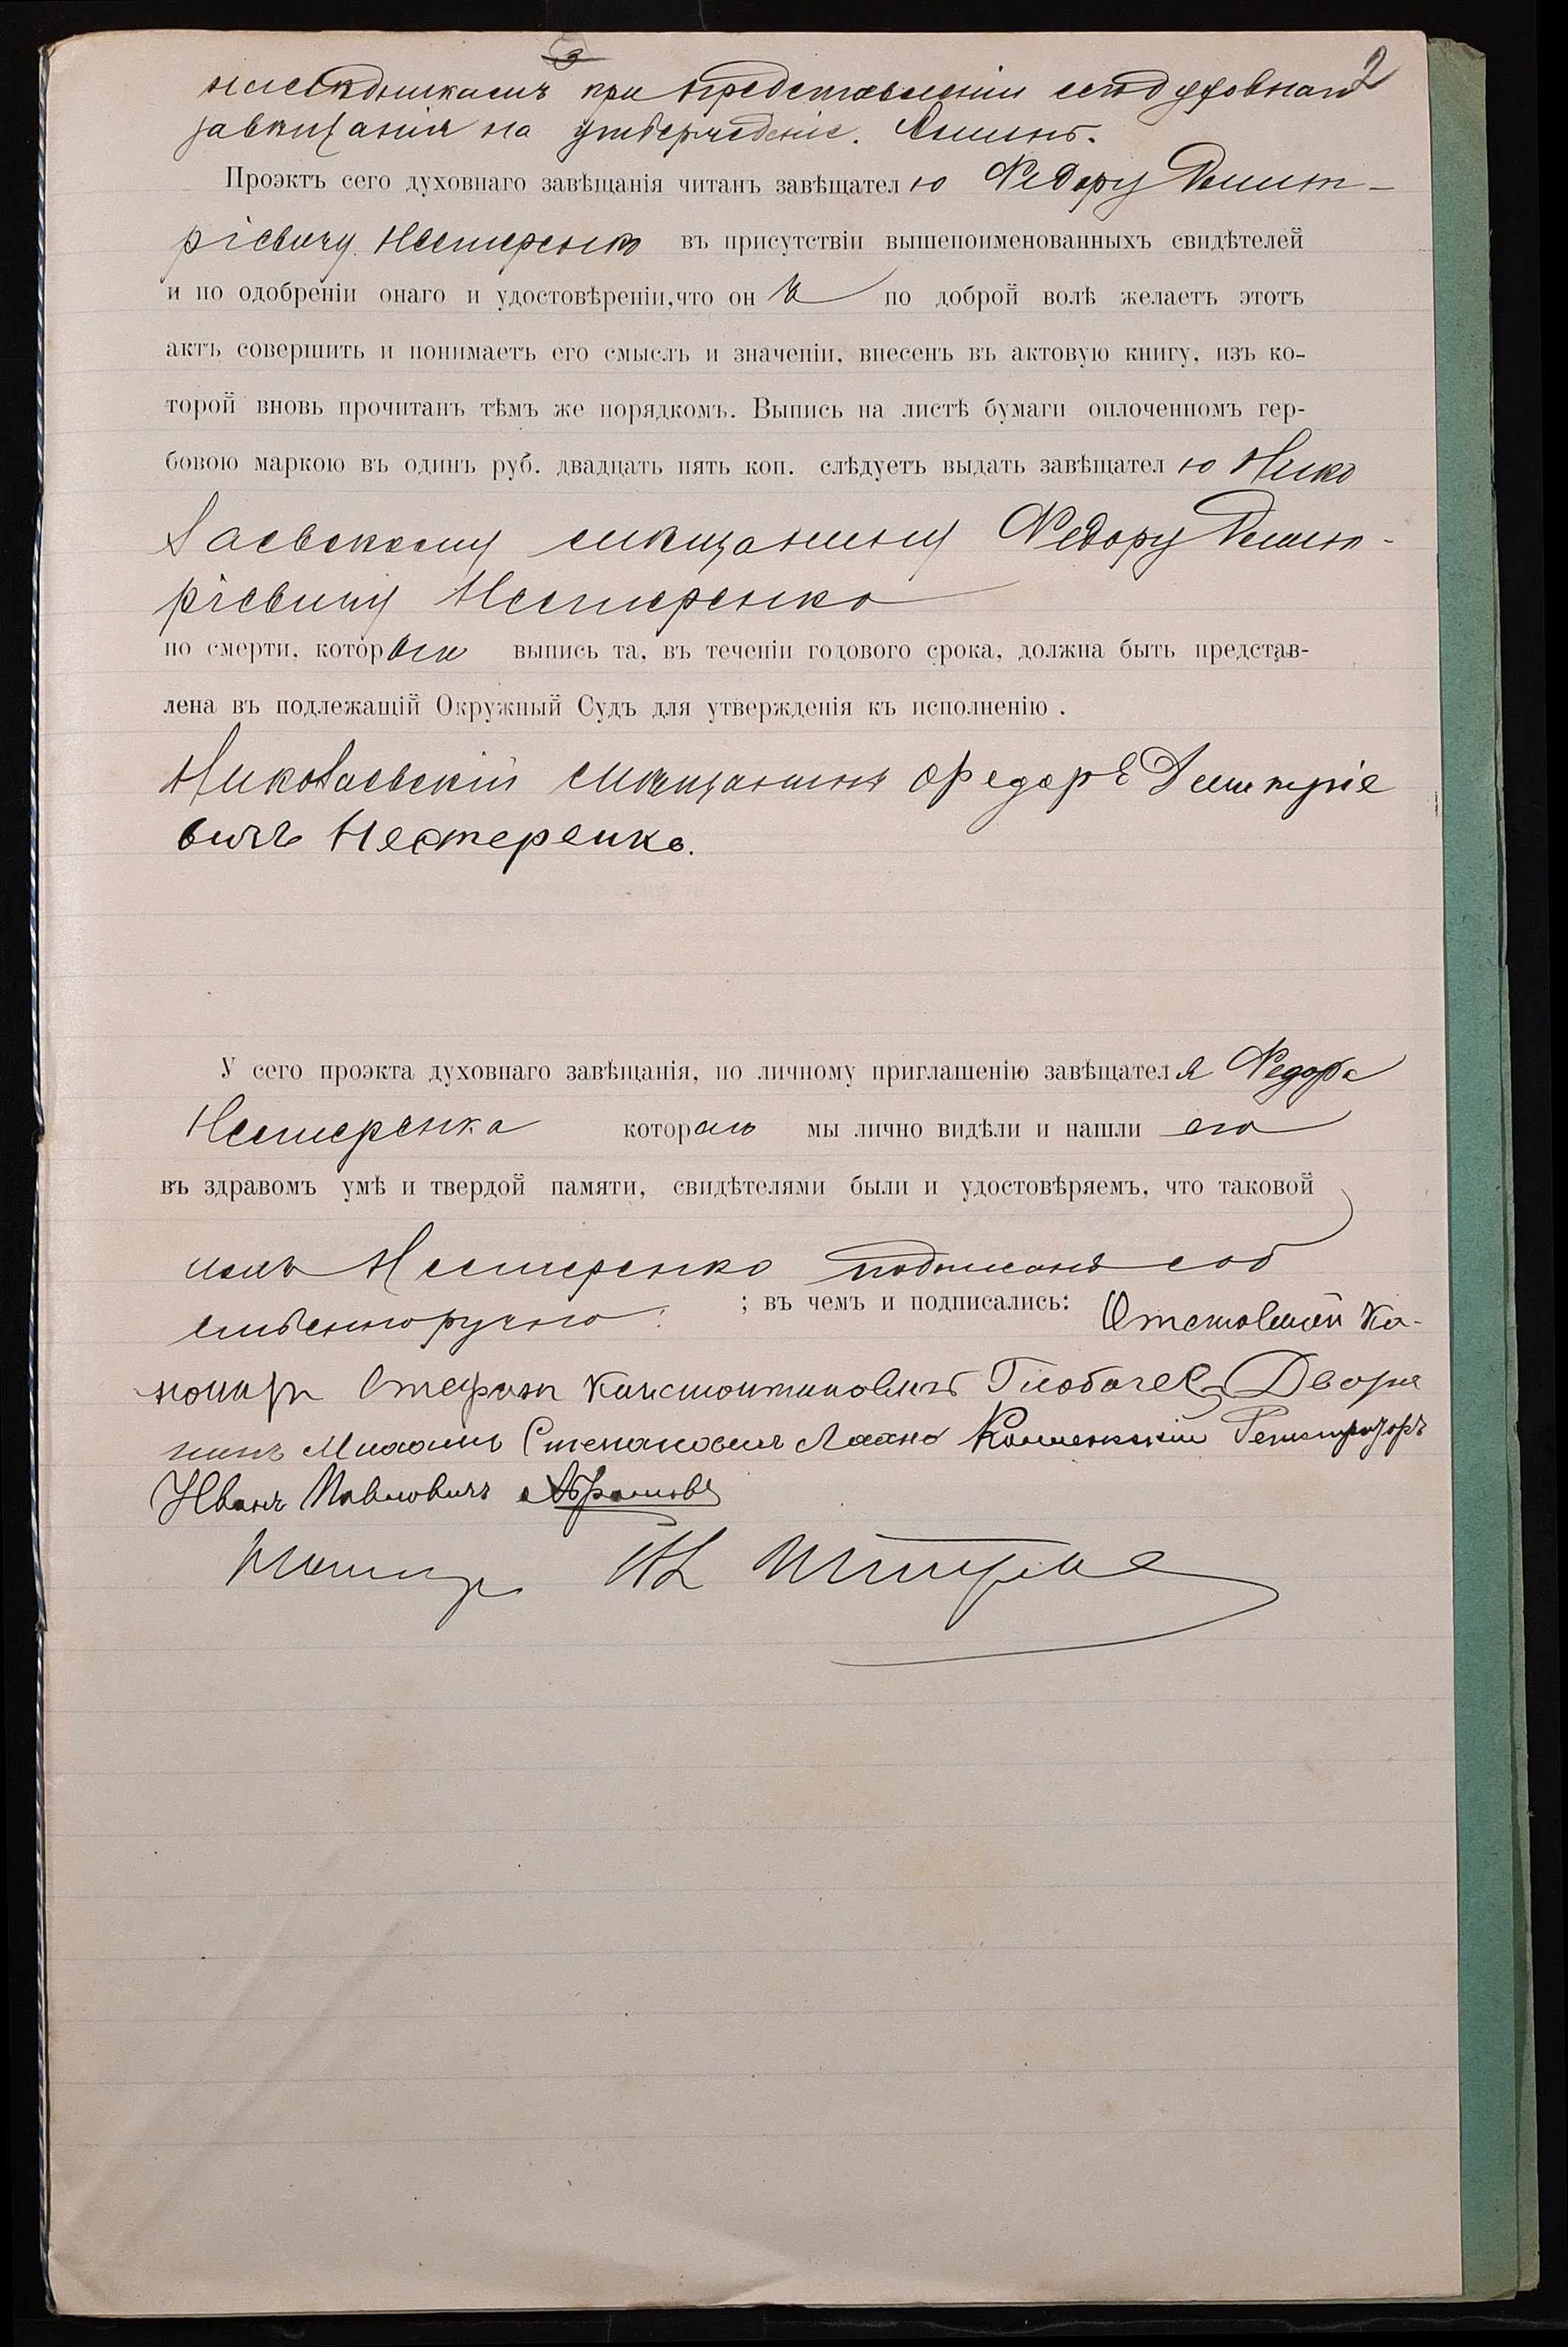 3
2
наслѣдникамъ при представленіи сего духовнаго
завѣщанія на утвержденіе. Аминь.
Проэктъ сего духовнаго завѣщанія читанъ завѣщателю Федору Димит-
ріевичу Нестеренко въ присутствіи вышепоименованныхъ свидѣтелей
и по одобреніи онаго и удостовѣреніи, что онъ по доброй волѣ желаетъ этотъ
актъ совершить и понимаетъ его смыслъ и значеніи, внесенъ въ актовую книгу, изъ ко-
торой вновь прочитанъ тѣмъ же порядкомъ. Выпись на листѣ бумаги оплоченномъ гер-
бовою маркою въ одинъ руб. двадцать пять коп. слѣдуетъ выдать завѣщателю Нико
лаевскому мѣщанину Федору Димит-
ріевичу Нестеренко
по смерти, котораго выпись та, въ теченіи годового срока, должна быть представ-
лена въ подлежащій Окружный Судъ для утвержденія къ исполненію.
Николаевскій мѣщанинъ Федоръ Димитріе
вичъ Нестеренко.
У сего проэкта духовнаго завѣщанія, по личному приглашенію завѣщателя Федора
Нестеренка котораго мы лично видѣли и нашли его
въ здравомъ умѣ и твердой памяти, свидѣтелями были и удостовѣряемъ, что таковой
имъ Нестеренко подписанъ соб
ственноручно; въ чемъ и подписались: Отставной Ка-
нониръ Стефанъ Константиновичъ Дворя
нинъ Михаилъ Степановичъ Лахно Коллежскій Регистраторъ
Иванъ Павловичъ Абрамовъ